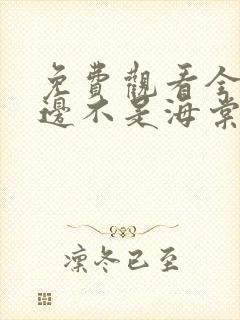 免費觀看全
邊不是海棠
凜冬已至